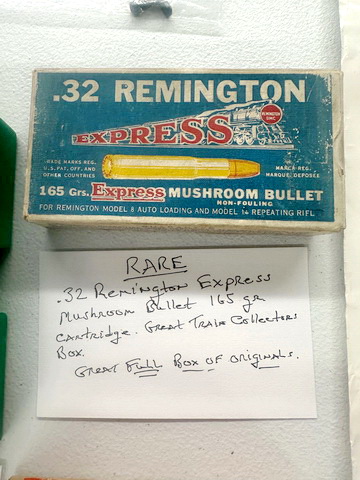 .32 REMINGTON
EXPRESS
REMINGTON
TRADE MARKS REG.
U.S. PAT. OFF. AND
OTHER COUNTRIES
MARCA REG.
MARQUE DEPOSÉE
165 Grs. Express MUSHROOM BULLET
NON-FOULING
FOR REMINGTON MODEL 8 AUTO LOADING AND MODEL 14 REPEATING RIFL
RARE
.32 Remington Express
Mushroom Bullet 165 gr
Cartridge. Great Train Collectors
Box.
Great Full Box of originals.